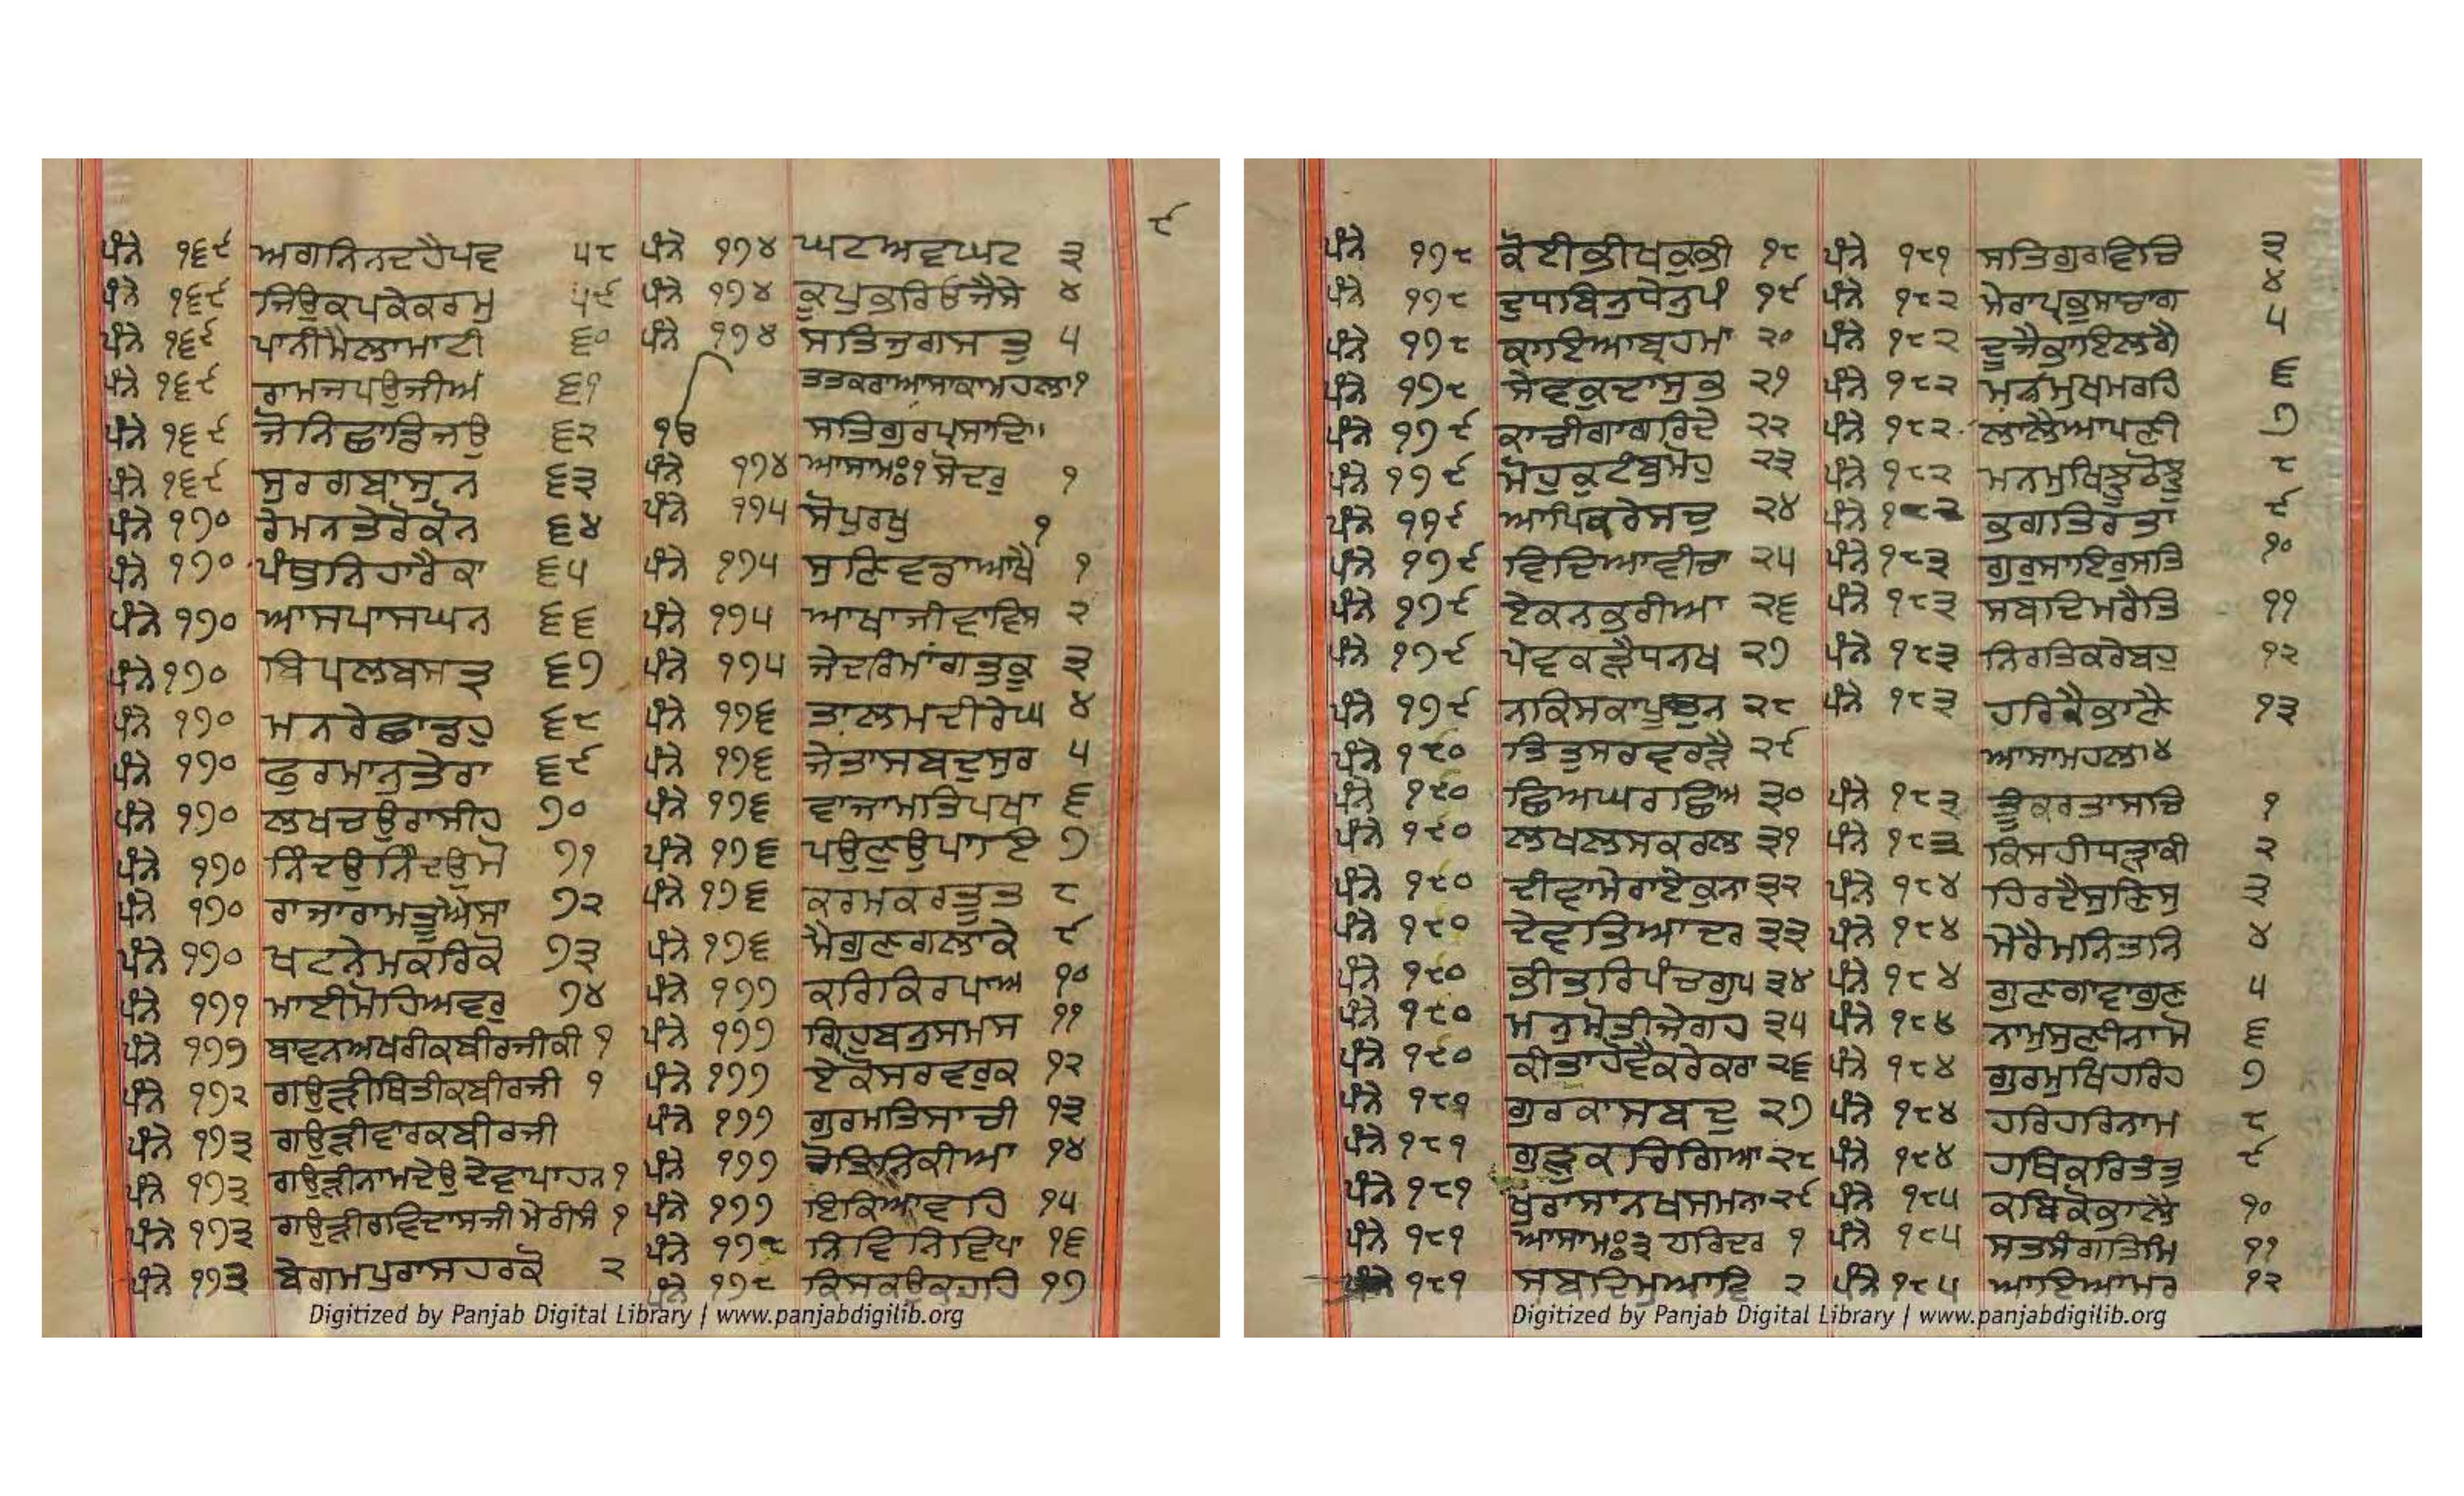 ੯
ਪੰਨੇ ੧੬੯ ਅਗਨਿਨਦਹੈਪਵ ੫੮
ਪੰਨੇ ੧੬੯ ਜਿਉਕਪਕੇਕਰਮੁ ੫੯
ਪੰਨੇ ੧੬੯ ਪਾਨੀਮੈਲਾਮਾਟੀ ੬੦
ਪੰਨੇ ੧੬੯ ਰਾਮਜਪਉਜੀਅ ੬੧
ਪੰਨੇ ੧੬੯ ਜੋਨਿਛਾਡਿਜਉ ੬੨
ਪੰਨੇ ੧੬੯ ਸੁਰਗਬਾਸੁਨ ੬੩
ਪੰਨੇ ੧੭੦ ਰੇਮਨਤੇਰੋਕੋਨ ੬੪
ਪੰਨੇ ੧੭੦ ਪੰਥੁਨਿਹਾਰੈਕਾ ੬੫
ਪੰਨੇ ੧੭੦ ਆਸਪਾਸਘਨ ੬੬
ਪੰਨੇ ੧੭੦ ਬਿਪਲਬਸਤ੍ਰ ੬੭
ਪੰਨੇ ੧੭੦ ਮਨਰੇਛਾਡਹੁ ੬੮
ਪੰਨੇ ੧੭੦ ਫੁਰਮਾਨੁਤੇਰਾ ੬੯
ਪੰਨੇ ੧੭੦ ਲਖਚਉਰਾਸੀਹ ੭੦
ਪੰਨੇ ੧੭੦ ਨਿੰਦਉਨਿੰਦਉਮੋ ੭੧
ਪੰਨੇ ੧੭੦ ਰਾਜਾਰਾਮਤੂਐਸਾ ੭੨
ਪੰਨੇ ੧੭੦ ਖਟਨੇਮਕਰਿਕੋ ੭੩
ਪੰਨੇ ੧੭੧ ਮਾਈਮੋਹਿਅਵਰੁ ੭੪
ਪੰਨੇ ੧੭੭ ਬਾਵਨਅਖਰੀਕਬੀਰਜੀਕੀ ੧
ਪੰਨੇ ੧੭੨ ਗਉੜੀਥਿਤੀਕਬੀਰਜੀ ੧
ਪੰਨੇ ੧੭੩ ਗਉੜੀਵਾਰਕਬੀਰਜੀ
ਪੰਨੇ ੧੭੩ ਗਉੜੀਨਾਮਦੇਉਦੇਵਾਪਾਹਨ ੧
ਪੰਨੇ ੧੭੩ ਗਉੜੀਰਵਿਦਾਸਜੀਮੇਰੀਸੰ ੧
ਪੰਨੇ ੧੭੩ ਬੇਗਮਪੁਰਾਸਹਰਕੋ ੨
ਪੰਨੇ ੧੭੪ ਘਟਅਵਘਟ ੩
ਪੰਨੇ ੧੭੪ ਕੂਪੁਭਰਿਓਜੈਸੇ ੪
ਪੰਨੇ ੧੭੪ ਸਤਿਜੁਗਸਤੁ ੫
ਤਤਕਰਾਆਸਾਕਾਮਹਲਾ੧
ੴ ਸਤਿਗੁਰਪ੍ਰਸਾਦਿ॥
ਪੰਨੇ ੧੭੪ ਆਸਾਮਃ੧ਸੋਦਰੁ ੧
ਪੰਨੇ ੧੭੫ ਸੋਪੁਰਖੁ ੧
ਪੰਨੇ ੧੭੫ ਸੁਣਿਵਡਾਆਖੈ ੧
ਪੰਨੇ ੧੭੫ ਆਖਾਜੀਵਾਵਿਸ ੨
ਪੰਨੇ ੧੭੫ ਜੇਦਰਿਮਾਂਗਤੁਕੂ ੩
ਪੰਨੇ ੧੭੬ ਤਾਲਮਦੀਰੇਘ ੪
ਪੰਨੇ ੧੭੬ ਜੇਤਾਸਬਦੁਸੁਰ ੫
ਪੰਨੇ ੧੭੬ ਵਾਜਾਮਤਿਪਖਾ ੬
ਪੰਨੇ ੧੭੬ ਪਉਣੁਉਪਾਇ ੭
ਪੰਨੇ ੧੭੬ ਕਰਮਕਰਤੂਤ ੮
ਪੰਨੇ ੧੭੬ ਮੈਗੁਣਗਲਾਕੇ ੯
ਪੰਨੇ ੧੭੭ ਕਰਿਕਿਰਪਾਅ ੧੦
ਪੰਨੇ ੧੭੭ ਗ੍ਰਿਹੁਬਨੁਸਮਸ ੧੧
ਪੰਨੇ ੧੭੭ ਏਕੋਸਰਵਰੁਕ ੧੨
ਪੰਨੇ ੧੭੭ ਗੁਰਮਤਿਸਾਚੀ ੧੩
ਪੰਨੇ ੧੭੭ ਜੋਤਿਨਿਕੀਆ ੧੪
ਪੰਨੇ ੧੭੭ ਇਕਿਆਵਹਿ ੧੫
ਪੰਨੇ ੧੭੮ ਨਿਵਿਨਿਵਿਪਾ ੧੬
ਪੰਨੇ ੧੭੮ ਕਿਸਕਉਕਹਹਿ ੧੭
Digitized by Panjab Digital Library | www.panjabdigilib.org
ਪੰਨੇ ੧੭੮ ਕੋਈਭੀਖਕੁਭੀ ੧੮
ਪੰਨੇ ੧੭੮ ਦੁਧਬਿਨੁਧੇਨੁਪੰ ੧੯
ਪੰਨੇ ੧੭੮ ਕਾਇਆਬ੍ਰਹਮਾ ੨੦
ਪੰਨੇ ੧੭੮ ਸੇਵਕੁਦਾਸੁਭ ੨੧
ਪੰਨੇ ੧੭੯ ਕਾਚੀਗਾਗਰਿਦੇ ੨੨
ਪੰਨੇ ੧੭੯ ਮੋਹੁਕੁਟੰਬੁਮੋਹੁ ੨੩
ਪੰਨੇ ੧੭੯ ਆਪਿਕਰੇਸਚੁ ੨੪
ਪੰਨੇ ੧੭੯ ਵਿਦਿਆਵੀਚਾ ੨੫
ਪੰਨੇ ੧੭੯ ਏਕਨਭਰੀਆ ੨੬
ਪੰਨੇ ੧੭੯ ਪੇਵਕੜੈਧਨਖ ੨੭
ਪੰਨੇ ੧੭੯ ਨਕਿਸਕਾਪੁਤੁਨ ੨੮
ਪੰਨੇ ੧੮੦ ਤਿਤੁਸਰਵਰੜੈ ੨੯
ਪੰਨੇ ੧੮੦ ਛਿਅਘਰਛਿਅ ੩੦
ਪੰਨੇ ੧੮੦ ਲਖਲਸਕਰਲ ੩੧
ਪੰਨੇ ੧੮੦ ਦੀਵਾਮੇਰਾਏਕੁਨਾ ੩੨
ਪੰਨੇ ੧੮੦ ਦੇਵਤਿਆਦਰ ੩੩
ਪੰਨੇ ੧੮੦ ਭੀਤਰਿਪੰਚਗੁਪ ੩੪
ਪੰਨੇ ੧੮੦ ਮਨੁਮੋਤੀਜੇਗਹ ੩੫
ਪੰਨੇ ੧੮੦ ਕੀਤਾਹੋਵੈਕਰੇਕਰਾ ੨੬
ਪੰਨੇ ੧੮੧ ਗੁਰਕਾਸਬਦੁ ੨੭
ਪੰਨੇ ੧੮੧ ਗੁੜੁਕਰਿਗਿਆ ੨੮
ਪੰਨੇ ੧੮੧ ਖੁਰਾਸਾਨਖਸਮਨਾ ੨੯
ਪੰਨੇ ੧੮੧ ਆਸਾਮਃ੩ ਹਰਿਦਰ ੧
ਪੰਨੇ ੧੮੧ ਸਬਦਿਮੁਆਵਿ ੨
ਪੰਨੇ ੧੮੧ ਸਤਿਗੁਰਵਿਚਿ ੩
ਪੰਨੇ ੧੮੨ ਮੇਰਾਪ੍ਰਭੁਸਾਚਾਗ ੪
ਪੰਨੇ ੧੮੨ ਦੂਜੈਭਾਇਲਗੈ ੫
ਪੰਨੇ ੧੮੨ ਮਨਮੁਖਮਰਹਿ ੬
ਪੰਨੇ ੧੮੨ ਲਾਲੈਆਪਣੀ ੭
ਪੰਨੇ ੧੮੨ ਮਨਮੁਖਿਝੂਠੋਝੂ ੮
ਪੰਨੇ ੧੮੨ ਭਗਤਿਰਤਾ ੯
ਪੰਨੇ ੧੮੩ ਗੁਰੁਸਾਇਰੁਸਤਿ ੧੦
ਪੰਨੇ ੧੮੩ ਸਬਦਿਮਰੈਤਿ ੧੧
ਪੰਨੇ ੧੮੩ ਨਿਰਤਿਕਰੇਬਹੁ ੧੨
ਪੰਨੇ ੧੮੩ ਹਰਿਕੈਭਾਣੈ ੧੩
ਆਸਾਮਹਲਾ੪
ਪੰਨੇ ੧੮੩ ਤੂੰਕਰਤਾਸਚਿ ੧
ਪੰਨੇ ੧੮੩ ਕਿਸਹੀਧੜਾਕੀ ੨
ਪੰਨੇ ੧੮੪ ਹਿਰਦੈਸੁਣਿਸੁ ੩
ਪੰਨੇ ੧੮੪ ਮੇਰੈਮਨਿਤਨਿ ੪
ਪੰਨੇ ੧੮੪ ਗੁਣਗਾਵਾਗੁਣ ੫
ਪੰਨੇ ੧੮੪ ਨਾਮੁਸੁਣੀਨਾਮੋ ੬
ਪੰਨੇ ੧੮੪ ਗੁਰਮੁਖਿਹਰਿਹ ੭
ਪੰਨੇ ੧੮੪ ਹਰਿਹਰਿਨਾਮ ੮
ਪੰਨੇ ੧੮੪ ਹਥਿਕਰਿਤੰਤੁ ੯
ਪੰਨੇ ੧੮੫ ਕਬਿਕੋਭਾਲੈ ੧੦
ਪੰਨੇ ੧੮੫ ਸਤਸੰਗਤਿਮਿ ੧੧
ਪੰਨੇ ੧੮੫ ਆਇਆਮਰ ੧੨
Digitized by Panjab Digital Library | www.panjabdigilib.org